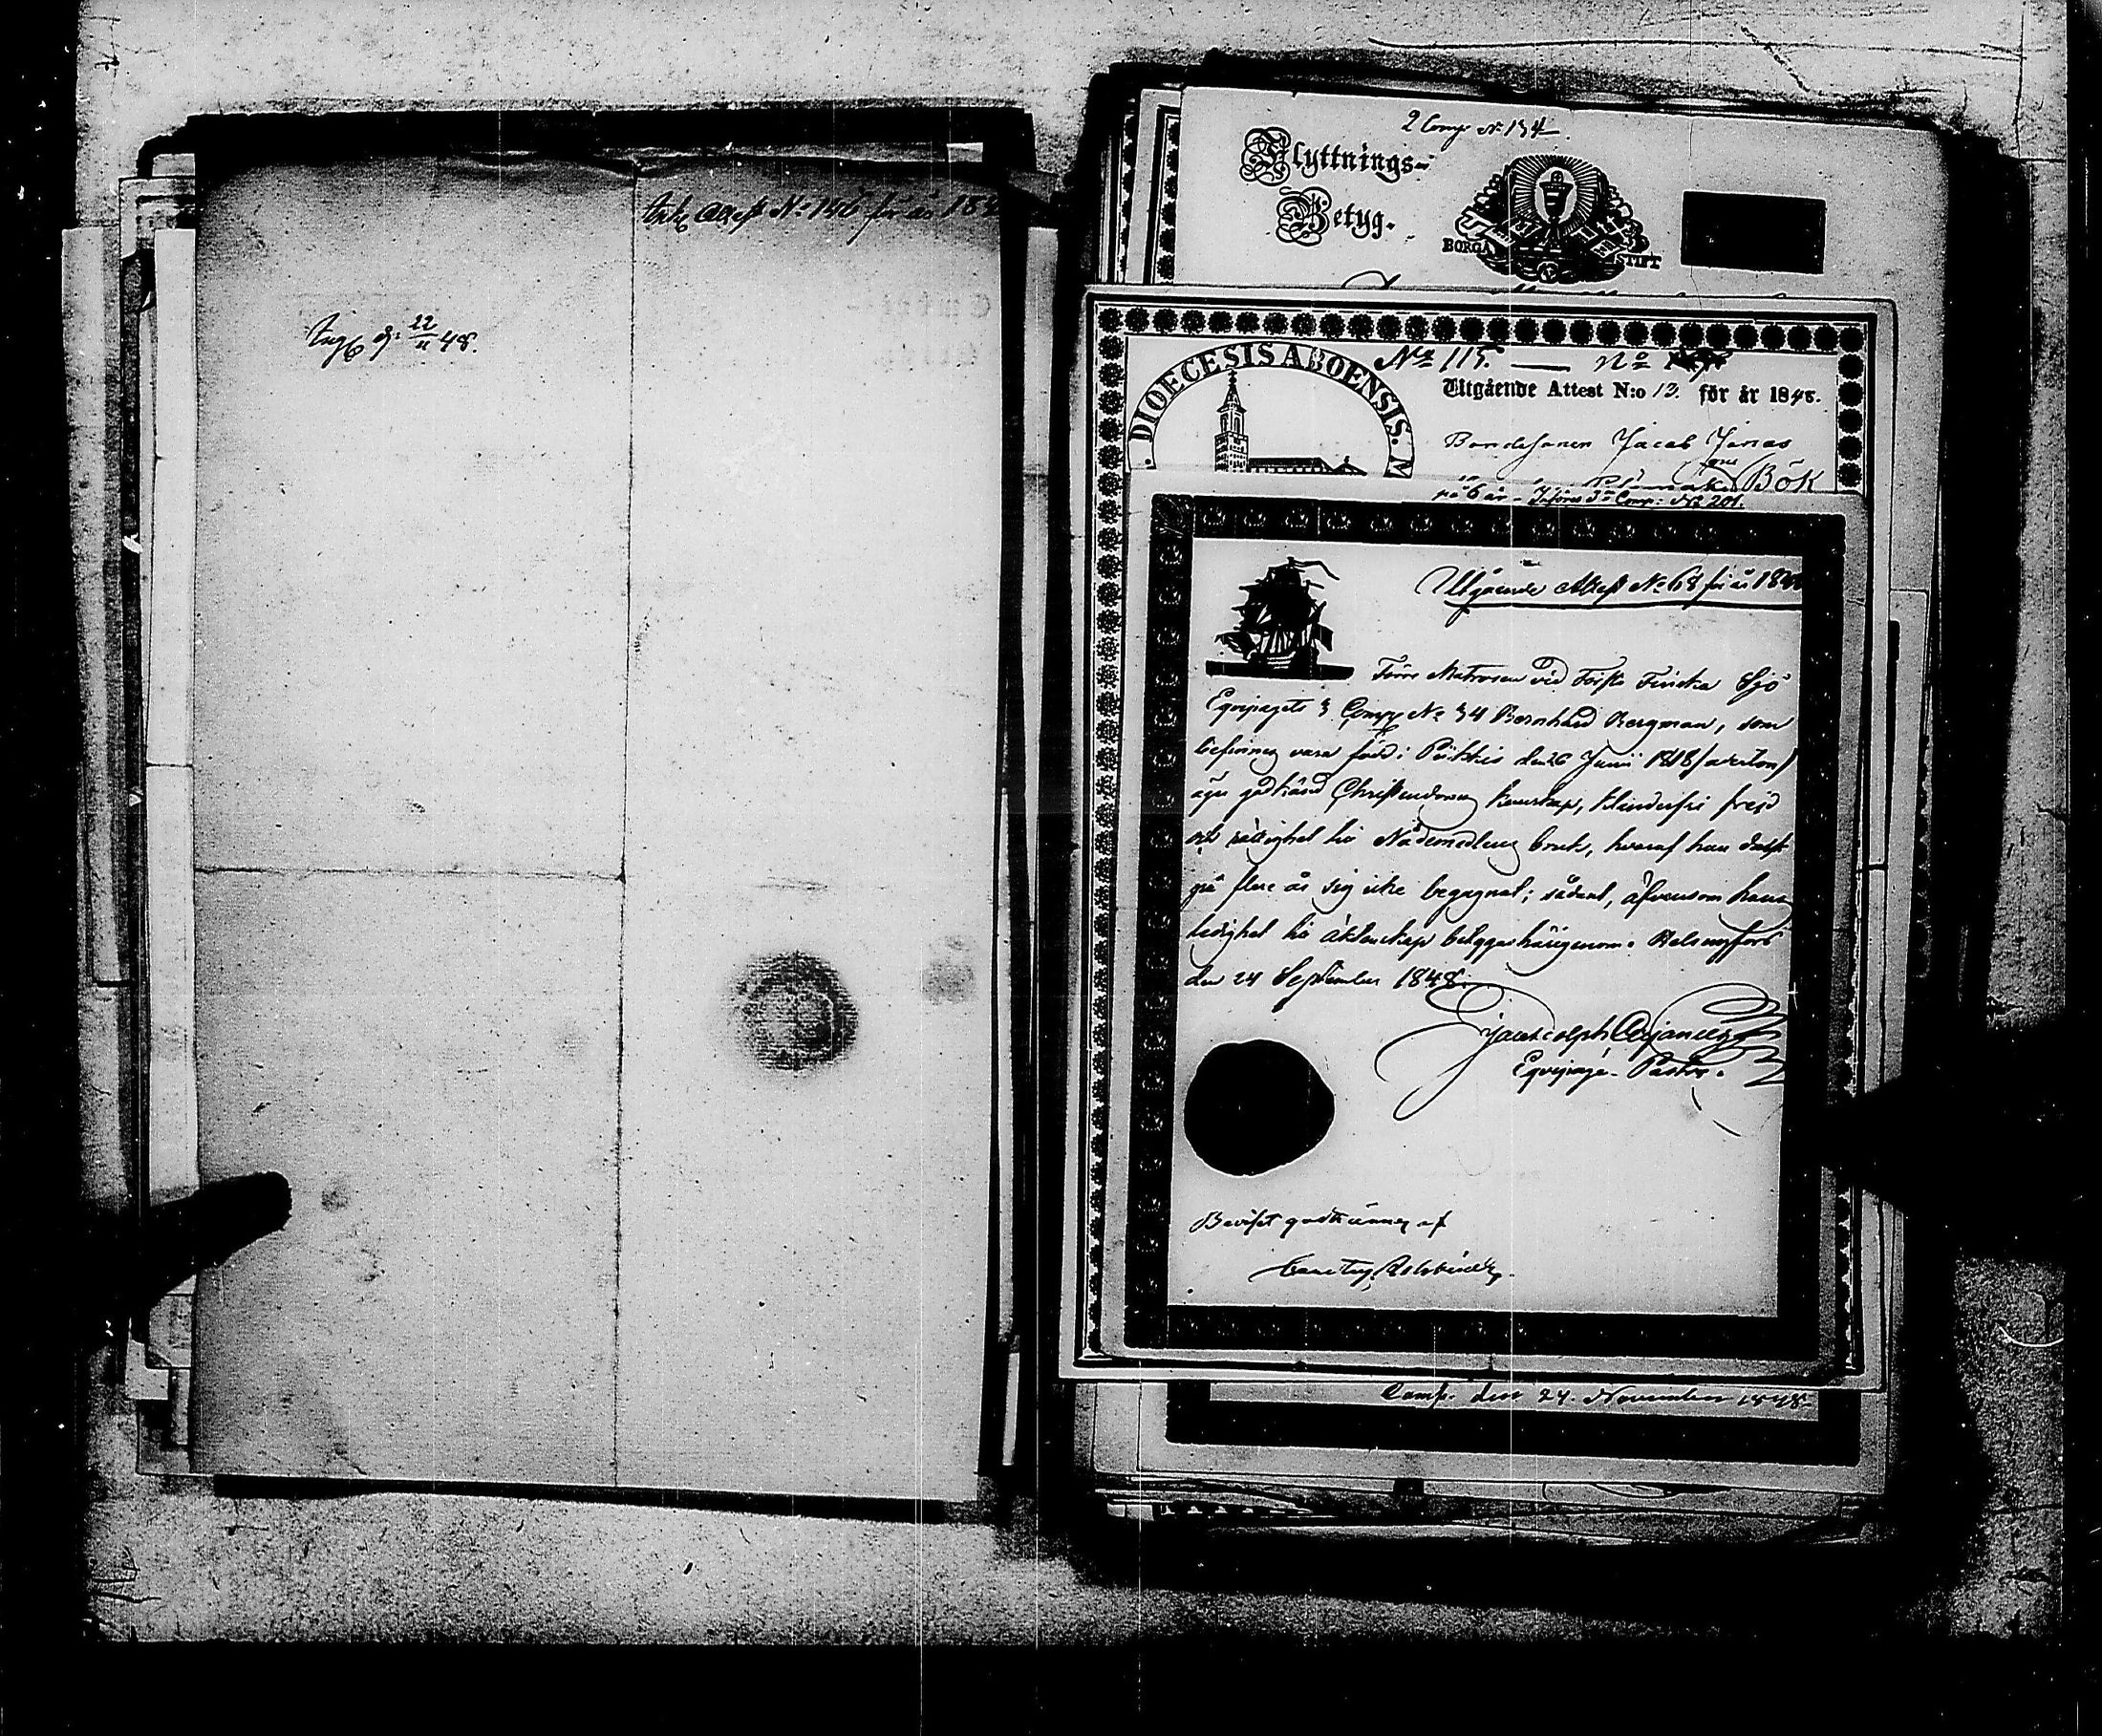 Attest No 146 för år 184
22/11 48.
2 Comp. No 134
Flyttnings-
Betyg.
BORGÅ STIFT
DIOECESIS ABOENSIS. M
No 115. — No
Utgående Attest N:o 13. för år 1848.
Bondesonen Jacob Jonas
Bök
på 6 år - Införes 3e Comp: No 201.
Utgående Attest No 68 för år 184
Förre Matrosen vid Första Finska Sjö
Equipagets 3 Comp No 34 Bernhard Bergman, som
befinnes vara född i Pikkis den 26 Junii 1818/aderton/
ager godkänd Christendoms kunskap, klanderfri frejd
och rättighet till Nådemedlens bruk, hvaraf han dock
på flere år sig icke begagnat; sådant, äfvensom hans
ledighet till äktenskap betygas härigenom. Helsingfors
den 24 September 1848.
Equipage-Pastor.
Beviset godkännes af
Comp. den 24. November 1848.